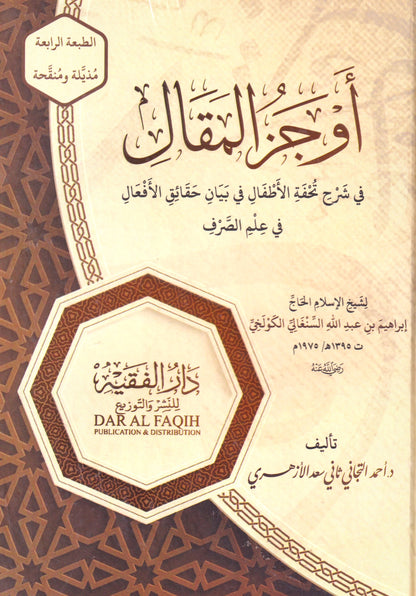 الطبعة الرابعة
مُذيَّلة ومُنقَّحة
أَوْجَزُ المَقَالِ
في شَرْحِ تُحْفَةِ الأَطْفَالِ في بَيَانِ حَقَائِقِ الأَفْعَالِ
في عِلْمِ الصَّرْفِ
لِشَيخِ الإسلامِ الحَاجِّ
إبراهيمَ بنِ عبدِ اللهِ السِّنْغَالِيِّ الكَوْلَخِيِّ
ت ١٣٩٥هـ/ ١٩٧٥م
رَضِيَ اللهُ عَنْهُ
دَارُ الفَقِيهِ
للنَّشْرِ وَالتَّوزيع
DAR AL FAQIH
PUBLICATION & DISTRIBUTION
تأليف
د. أحمد التجاني ثاني سعد الأزهري